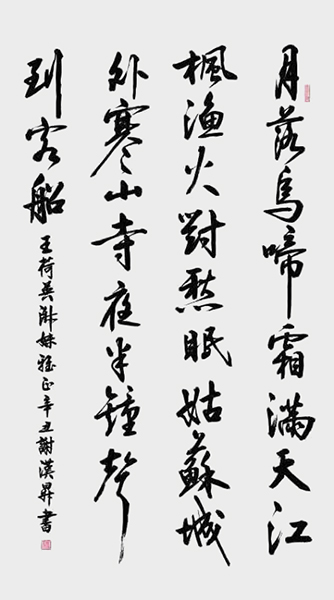 月落烏啼霜滿天江
楓漁火對愁眠姑蘇城
外寒山寺夜半鐘聲
到客船
王荷英妹雅正辛丑謝漢昇書